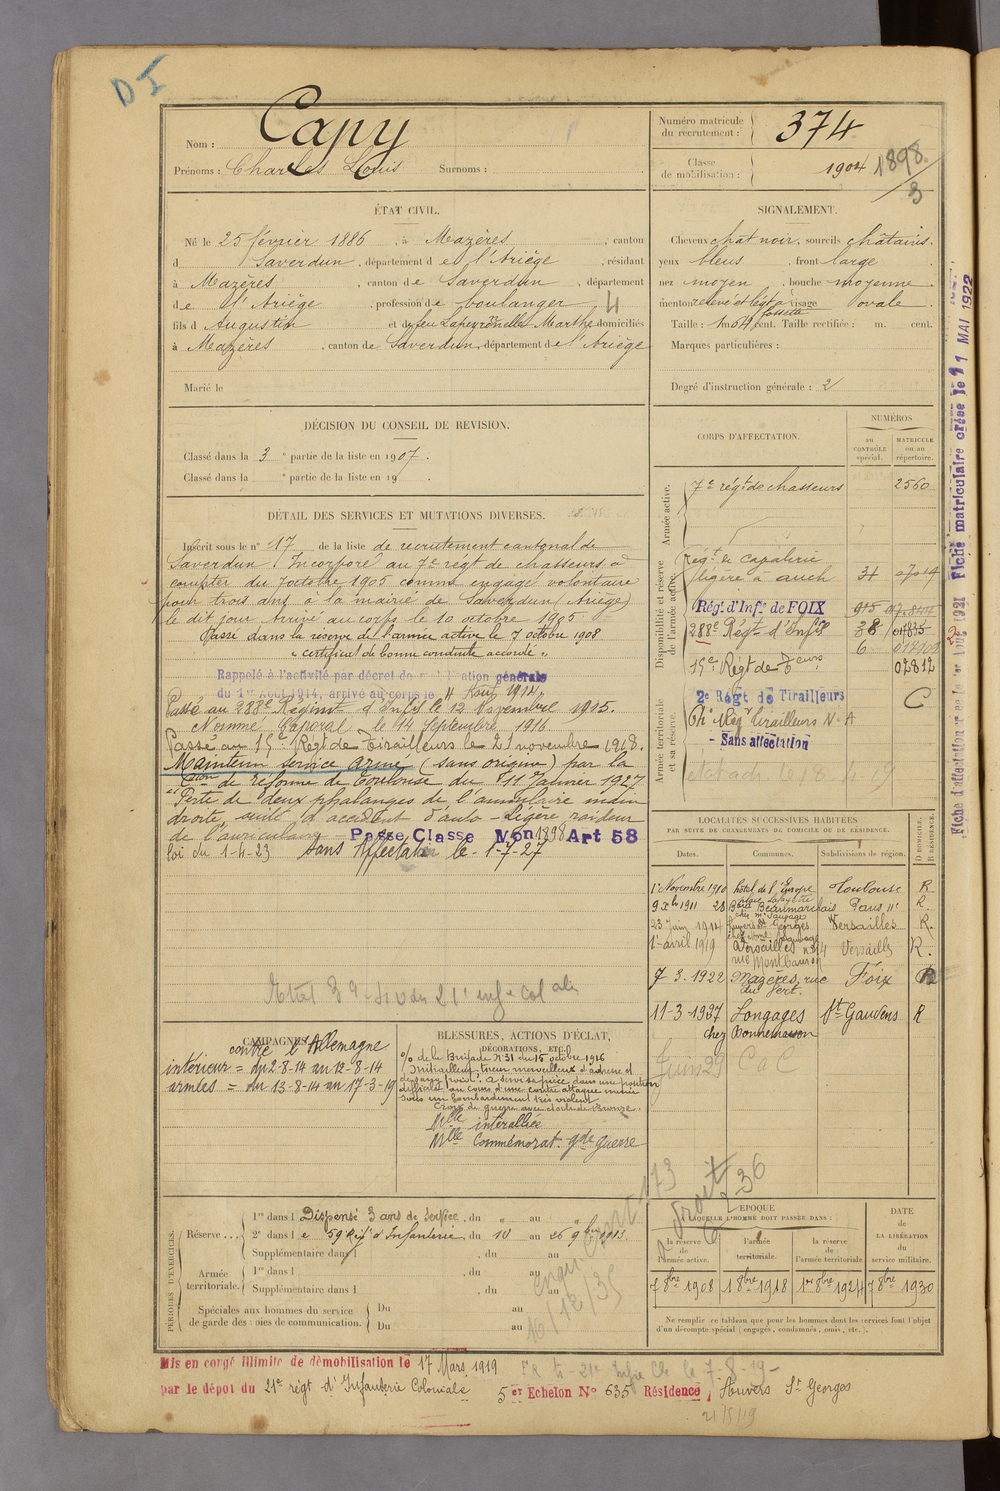 D I
Nom : Capy
Prénoms : Charles Louis Surnoms :
Numéro matricule du recrutement : 374
Classe de mobilisation : 1904 1898
3
ÉTAT CIVIL.
Né le 25 février 1886, à Mazères, canton
d Saverdun, département de l'Ariège, résidant
à Mazères, canton de Saverdun, département
de l'Ariège, profession de boulanger
fils d Augustin et de feu Lapeyronelle Marthe domiciliés
à Mazères, canton de Saverdun, département de l'Ariège
Marié le
SIGNALEMENT.
Cheveux chat noir, sourcils châtains.
yeux bleus, front large
nez moyen, bouche moyenne
menton relevé et légt à fossette visage ovale
Taille : 1m 64 cent. Taille rectifiée : m. cent.
Marques particulières :
Degré d'instruction générale : 2
DÉCISION DU CONSEIL DE REVISION.
Classé dans la 3 e partie de la liste en 1907.
Classé dans la e partie de la liste en 19 .
DÉTAIL DES SERVICES ET MUTATIONS DIVERSES.
Inscrit sous le n° 17 de la liste de recrutement cantonal de
Saverdun. Incorporé au 7e régt de chasseurs à
compter du 7 octobre 1905 comme engagé volontaire
pour trois ans à la mairie de Saverdun (Ariège)
le dit jour Arrivé au corps le 10 octobre 1905
Passé dans la réserve de l'armée active le 7 octobre 1908
"certificat de bonne conduite accordé"
Rappelé à l'activité par décret de mobilisation générale
du 1er Août 1914, arrivé au corps le 4 Août 1914
Passé au 288e Régiment d'Infie le 12 Novembre 1915.
Nommé Caporal le 14 Septembre 1916
Passé au 15e Régt de Tirailleurs le 21 novembre 1918.
Maintenu service armé (sans origine) par la
Con de réforme de Toulouse du 11 Janvier 1927
"Perte de deux phalanges de l'annulaire main
droite, suite d'accident d'auto - Légère raideur
de l'auriculaire Passé Classe Mon 1898 Art 58
loi du 1-4-23 sans affectation le 1-7-27
CORPS D'AFFECTATION.
NUMÉROS
AU CONTRÔLE spécial.
MATRICULE ou au répertoire.
Armée active.
7e régt de chasseurs 2560
Disponibilité et réserve de l'armée active.
régt de cavalerie
légère à auch 34
Régt d'Infie de FOIX 915
288e Régt d'Infie 38 01835
6
15e Régt de Teurs 02812
Armée territoriale et sa réserve.
2e Régt de Tirailleurs C
Régt Tirailleurs N-A
- Sans affectation
Fiche matriculaire créée le 11 MAI 1922
LOCALITÉS SUCCESSIVES HABITÉES
PAR SUITE DE CHANGEMENTS DE DOMICILE OU DE RÉSIDENCE.
Dates. Communes. Subdivisions de région. D DOMICILE. R RÉSIDENCE.
1er Novembre 1910 hôtel de l'Europe Toulouse R
9 Xbre 1911 28 Bard Beaumarchais Paris 11e R.
23 Juin 1914 Louvers St Georges Versailles R.
1er avril 1919 Versailles Versailles R.
rue Montbauron
7-3-1922 Mazères, rue Foix R
du Fert.
11-3-1927 Longages St Gaudens R
chez Bonnemaison
Juin 29 C a C
CAMPAGNES.
contre l'Allemagne
intérieur = du 2-8-14 au 12-8-14
armées = du 13-8-14 au 17-3-19
BLESSURES, ACTIONS D'ÉCLAT,
DÉCORATIONS, ETC.
% de la Brigade N° 31 du 15 octobre 1916
Mitrailleur, tireur merveilleux d'adresse et
de sang froid, a servi sa pièce dans une position
difficile au cours d'une contre attaque menée
sous un bombardement très violent.
Croix de guerre avec étoile de Bronze.
Mlle interalliée
Mlle Commémorat. gde guerre
PÉRIODES D'EXERCICES.
Réserve... 1re dans l Dispensé 3 ans de service, du " au "
2e dans l e 59 Régt d'Infanterie, du 10 au 26 9bre 1913.
Supplémentaire dans l , du au
Armée territoriale. 1re dans l , du au
Supplémentaire dans l , du au
Spéciales aux hommes du service de garde des voies de communication. Du au
Du au
16/12/35
ÉPOQUE
À LAQUELLE L'HOMME DOIT PASSER DANS :
la réserve de l'armée active. l'armée territoriale. la réserve de l'armée territoriale
DATE DE LA LIBÉRATION du service militaire.
7 8bre 1908 1 8bre 1918 1er 8bre 1924 7 8bre 1930
Ne remplir ce tableau que pour les hommes dont les services font l'objet
d'un décompte spécial (engagés, condamnés, omis, etc.).
Mis en congé illimité de démobilisation le 17 Mars 1919
par le dépôt du 21e régt d'Infanterie Coloniale 5er Echelon N° 635 Résidence Louvers St Georges